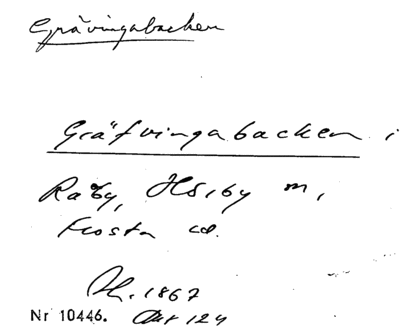 Grävingabacken
Gräfvingabacken i
Råby, Hörby m,
Frosta
1867
Nr 10446. Akt 124